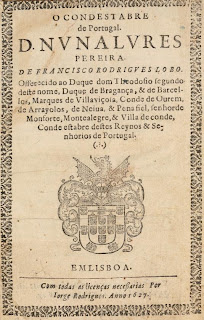 O CONDESTABRE
de Portugal.
D. NVNALVRES
PEREIRA.
DE FRANCISCO RODRIGVES LOBO.
Offerecido ao Duque dom Theodosio segundo
deste nome, Duque de Bragança, & de Barcel-
los, Marques de Villaviçosa, Conde de Ourem,
de Arrayolos, de Neiua, & Penafiel, senhor de
Monforte, Montealegre, & Villa de conde,
Condestabre destes Reynos & Se-
nhorios de Portugal.
(.?.)
EM LISBOA.
Com todas as licenças necessarias Por
Iorge Rodrigues. Anno 1627.